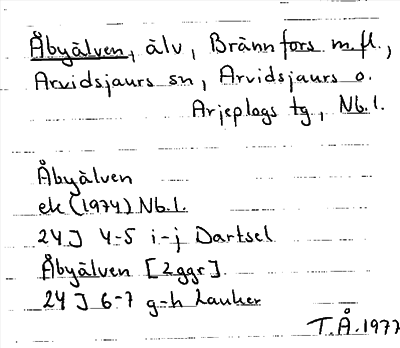 Åbyälven, älv, Brännfors m.fl.,
Arvidsjaurs sn, Arvidsjaurs o.
Arjeplogs tg, Nb.l.
Åbyälven
ek (1974) Nb.l.
24J 4-5 i-j Dartsel
Åbyälven [2 ggr].
24J 6-7 g-h Lauker
T.Å. 1977